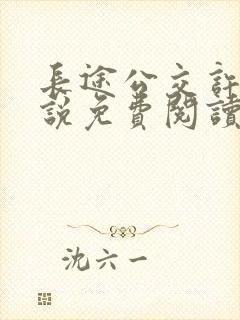 長途公交訐
說免費閱讀
沈六一